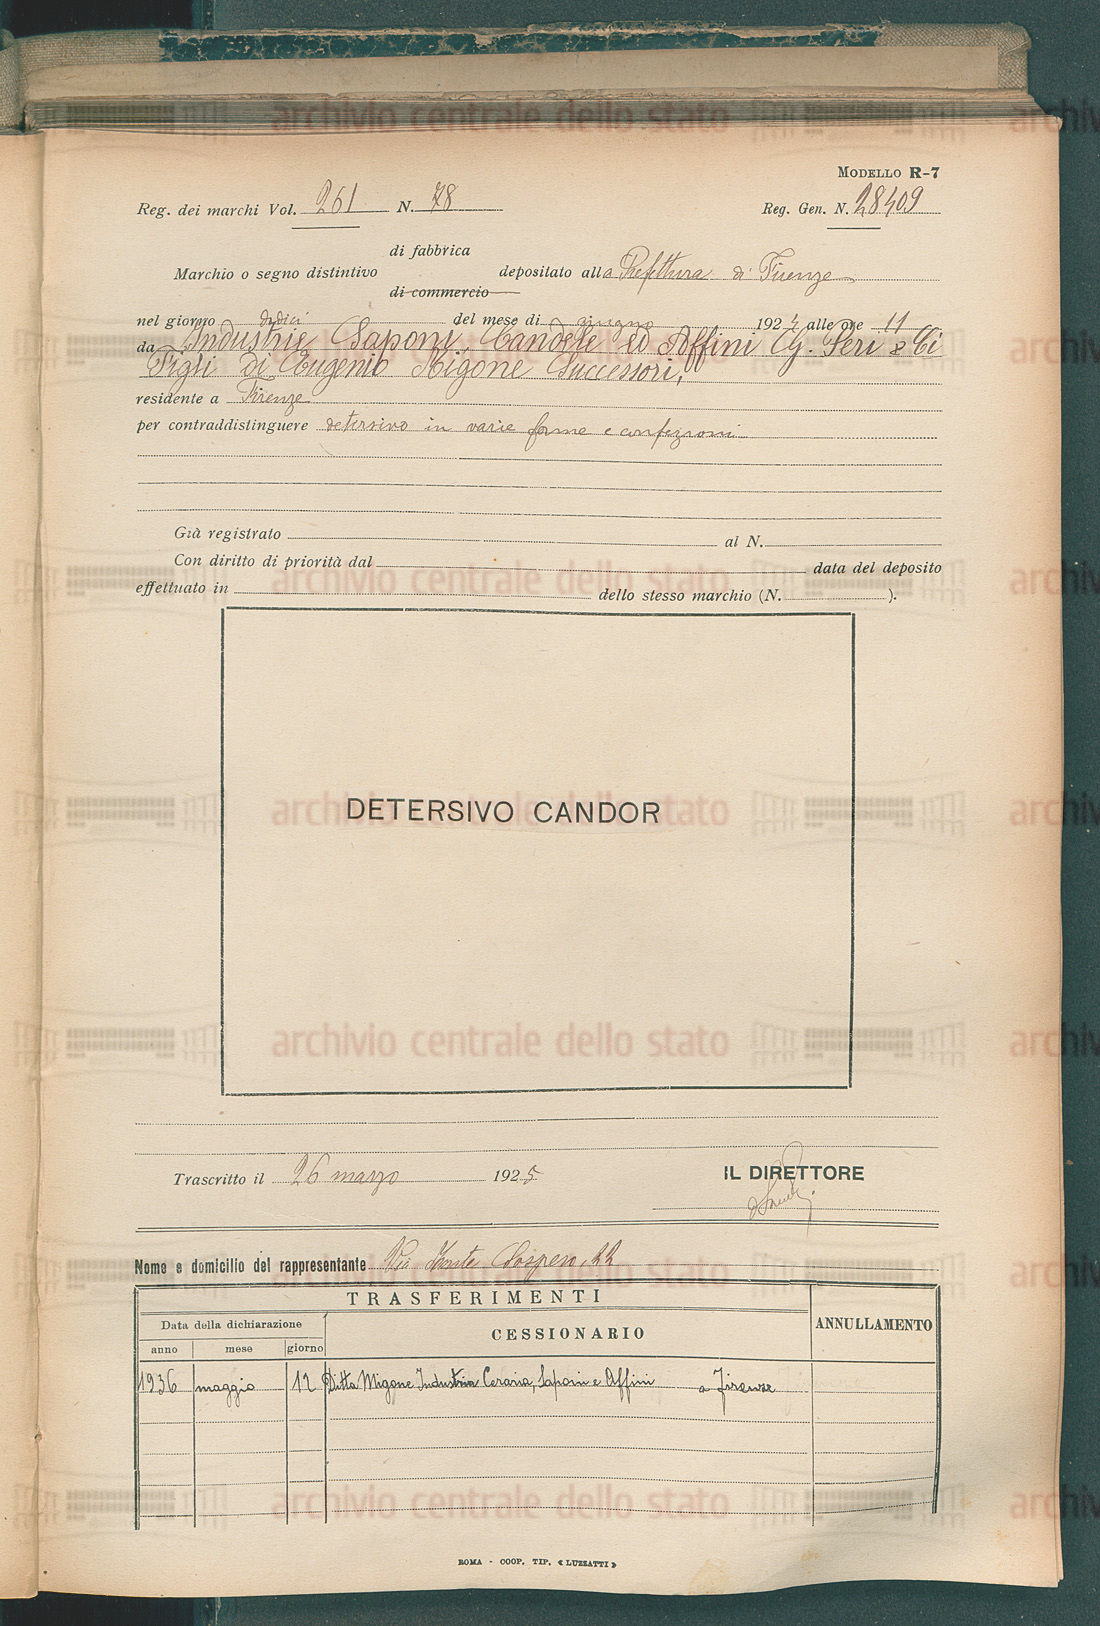 MODELLO R-7
Reg. dei marchi Vol. 261 N. 78 Reg. Gen. N. 28409
di fabbrica
Marchio o segno distintivo depositato alla Prefettura di Firenze
di commercio
nel giorno dodici del mese di giugno 1924 alle ore 11
da Industrie Saponi, Candele ed Affini G. Peri & Ci
Figli di Eugenio Migone Successori,
residente a Firenze
per contraddistinguere detersivo in varie forme e confezioni
Già registrato al N.
Con diritto di priorità dal data del deposito
effettuato in dello stesso marchio (N. ).
DETERSIVO CANDOR
Trascritto il 26 marzo 1925 IL DIRETTORE
Nome e domicilio del rappresentante Via Monte 22
TRASFERIMENTI
Data della dichiarazione CESSIONARIO ANNULLAMENTO
anno mese giorno
1936 maggio 12 Ditta Migone Industria Ceraria, Saponi e Affini a Firenze
ROMA - COOP. TIP. « LUZZATTI »
archivio centrale dello stato